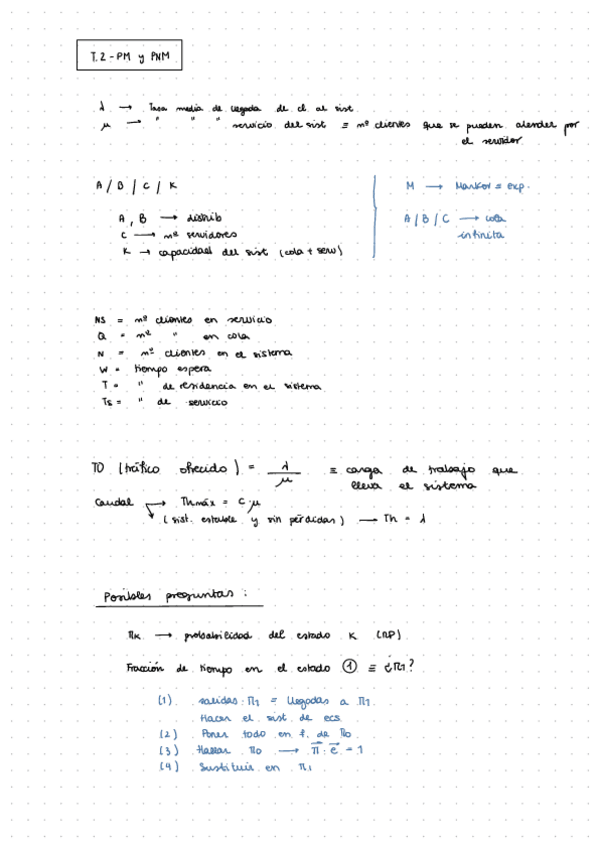 T.2 - PM y PNM
λ → Tasa media de llegada de cl al sist.
μ → " " " servicio del sist ≡ nº clientes que se pueden atender por
el servidor
A / B / C / K
A, B → distrib
C → nº servidores
K → capacidad del sist (cola + serv)
M → Markov = exp.
A / B / C → cola
infinita
NS = nº clientes en servicio
Q = nº " en cola
N = nº clientes en el sistema
W = tiempo espera
T = " de residencia en el sistema
Ts = " de servicio
TO (tráfico ofrecido) = λ / μ ≡ carga de trabajo que
lleva el sistema
Caudal → Thmáx = C·μ
(sist. estable y sin pérdidas) → Th = λ
Posibles preguntas :
πk → probabilidad del estado K (RP)
Fracción de tiempo en el estado ① ≡ ¿π1?
(1) salidas π1 = llegadas a π1.
Hacer el sist. de ecs
(2) Poner todo en f. de π0
(3) Hallar π0 → π · e = 1
(4) Sustituir en π1